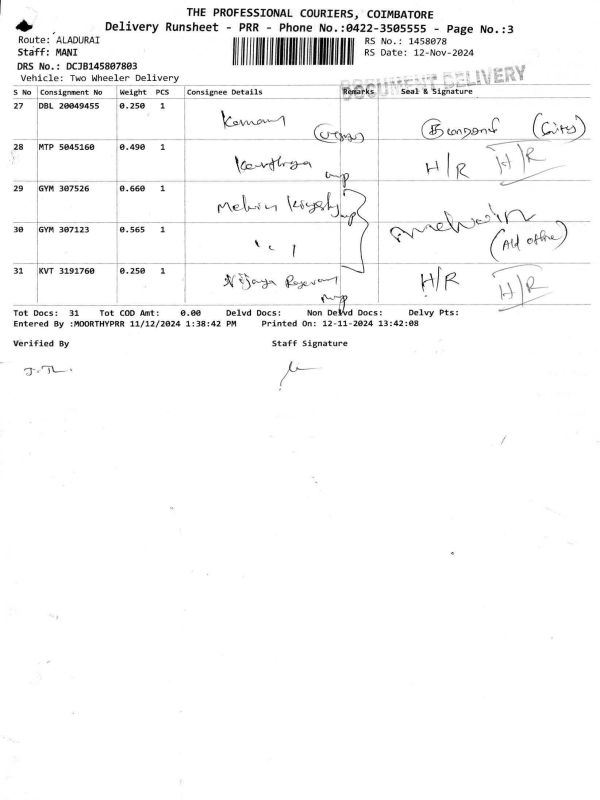 THE PROFESSIONAL COURIERS, COIMBATORE
Delivery Runsheet - PRR - Phone No.:0422-3505555 - Page No.:3
Route: ALADURAI
RS No.: 1458078
Staff: MANI
RS Date: 12-Nov-2024
DRS No.: DCJB145807803
Vehicle: Two Wheeler Delivery
DOCUMENT DELIVERY
S No Consignment No Weight PCS Consignee Details Remarks Seal & Signature
27 DBL 20049455 0.250 1
28 MTP 5045160 0.490 1 H/R H/R
29 GYM 307526 0.660 1 Melvin
30 GYM 307123 0.565 1
31 KVT 3191760 0.250 1 H/R H/R
Tot Docs: 31 Tot COD Amt: 0.00 Delvd Docs: Non Delvd Docs: Delvy Pts:
Entered By :MOORTHYPRR 11/12/2024 1:38:42 PM Printed On: 12-11-2024 13:42:08
Verified By Staff Signature